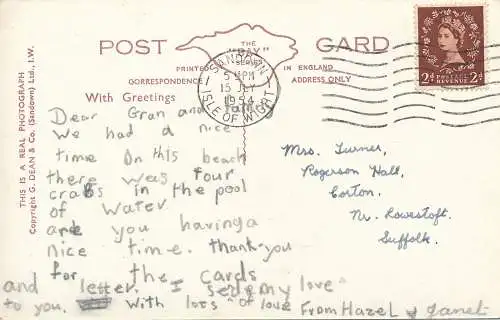 POST CARD
THE
"BAY"
SERIES
PRINTED IN ENGLAND
CORRESPONDENCE ADDRESS ONLY
With Greetings
THIS IS A REAL PHOTOGRAPH
Copyright G. DEAN & Co. (Sandown) Ltd., I.W.
SANDOWN
5 PM
15 JLY
1954
ISLE OF WIGHT
2d POSTAGE REVENUE 2d
Dear Gran and
We had a nice
time On this beach
there was four
crabs in the pool
of water
are you having a
nice time. thank you
for the cards
and letter. I send my love
to you. With lots of love From Hazel & Janet
Mrs. Turner,
Rogerson Hall,
Corton,
Nr. Lowestoft,
Suffolk.